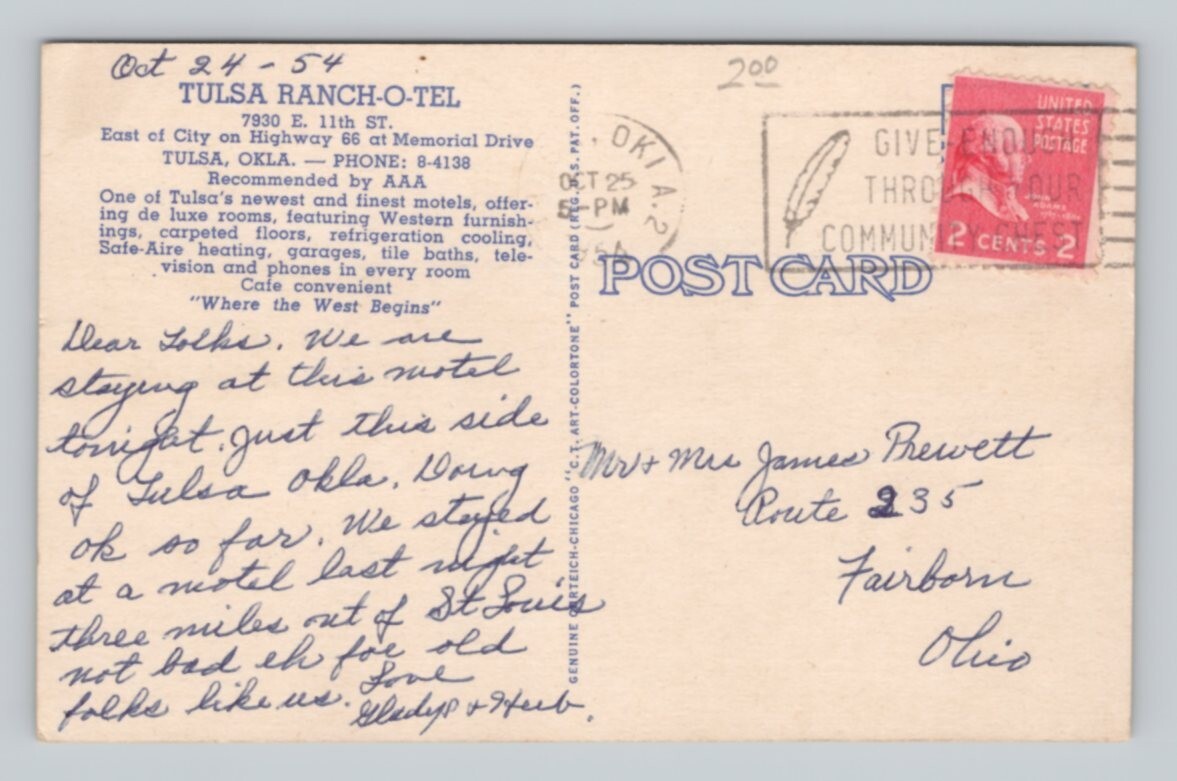 Oct 24 - 54
TULSA RANCH-O-TEL
7930 E. 11th ST.
East of City on Highway 66 at Memorial Drive
TULSA, OKLA. — PHONE: 8-4138
Recommended by AAA
One of Tulsa's newest and finest motels, offer-
ing de luxe rooms, featuring Western furnish-
ings, carpeted floors, refrigeration cooling,
Safe-Aire heating, garages, tile baths, tele-
vision and phones in every room
Cafe convenient
"Where the West Begins"
Dear Folks. We are
staying at this motel
tonight. Just this side
of Tulsa Okla. Doing
ok so far. We stayed
at a motel last night
three miles out of St Louis
not bad eh for old
folks like us. Love
Gladys + Herb.
GENUINE CURTEICH-CHICAGO "C.T. ART-COLORTONE" POST CARD (REG. U.S. PAT. OFF.)
2⁰⁰
OKLA.
OCT 25
PM
GIVE ENOUGH
THROUGH YOUR
COMMUNITY CHEST
UNITED
STATES
POSTAGE
JOHN
ADAMS
2 CENTS 2
POST CARD
Mr + Mrs James Prewett
Route 235
Fairborn
Ohio